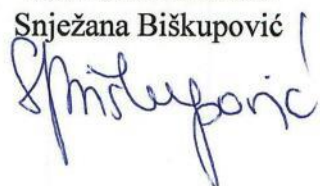 Snježana Biškupović
SBiškupović